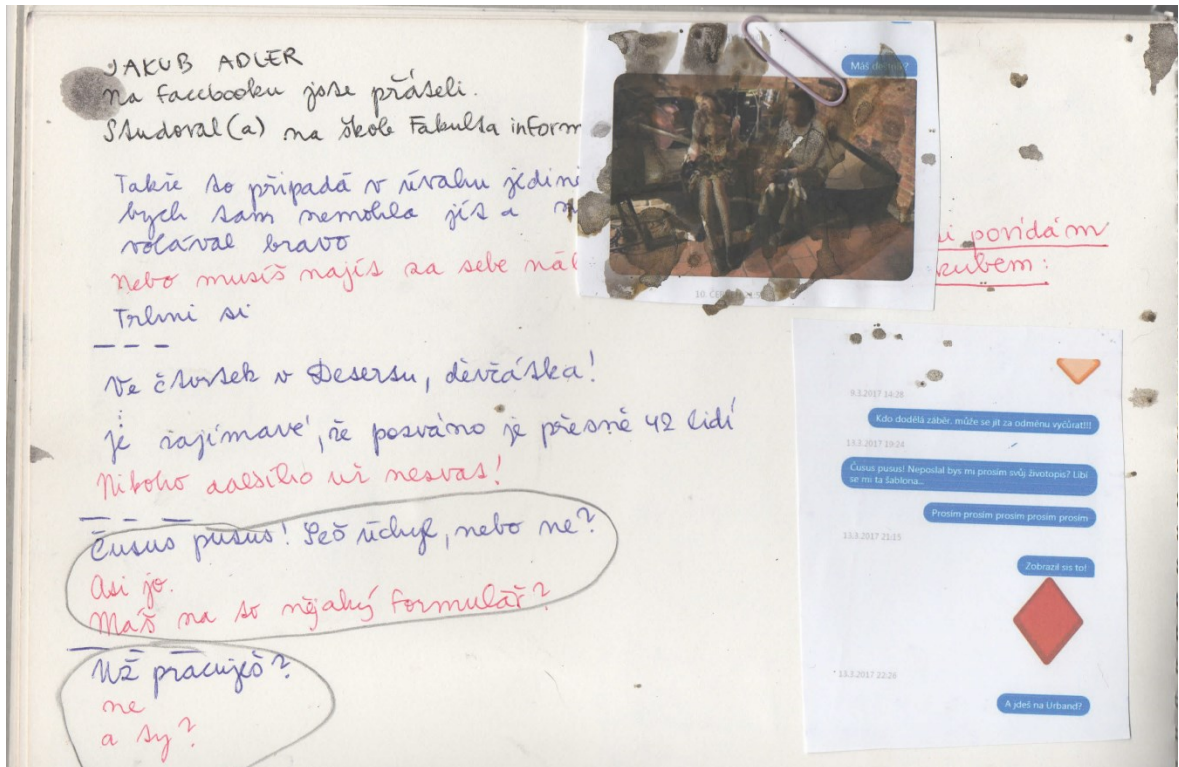 JAKUB ADLER
Na Facebooku jste přáteli.
Studoval(a) na škole Fakulta inform
Takže to připadá v úvahu jedině
bych tam nemohla jít a
volával bravo
Nebo musíš najít za sebe náh
Trhni si
Ve čtvrtek v Desertu, děvčátka!
Je zajímavé, že pozváno je přesně 42 lidí
Nikoho dalšího už nesvat!
Čusus pusus! Seš úchyl, nebo ne?
Asi jo.
Máš na to nějaký formulář?
Už pracuješ?
ne
a ty?
Máš
i povídám
kubem:
9.3.2017 14:28
Kdo dodělá záběr, může se jít za odměnu vyčůrat!!!
13.3.2017 19:24
Čusus pusus! Neposlal bys mi prosím svůj životopis? Líbí
se mi ta šablona...
Prosím prosím prosím prosím prosím
13.3.2017 21:15
Zobrazil sis to!
13.3.2017 22:26
A jdeš na Urband?